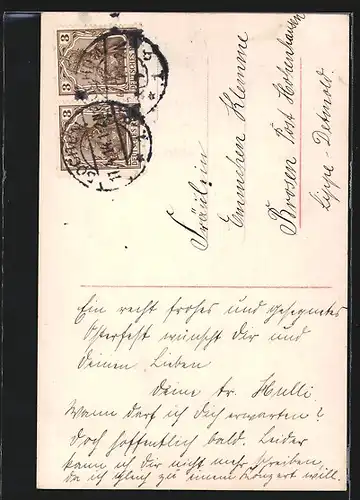 3
3
Fräulein
Emmchen Klemme
Brosen Post Hohenhausen
Lippe-Detmold
Ein recht frohes und gesegnetes
Osterfest wünscht Dir und
Deinen Lieben
Deine tr. Hulli.
Wann darf ich Dich erwarten?
Doch hoffentlich bald. Leider
kann ich Dir nicht mehr schreiben,
da ich gleich zu einem Konzert will.